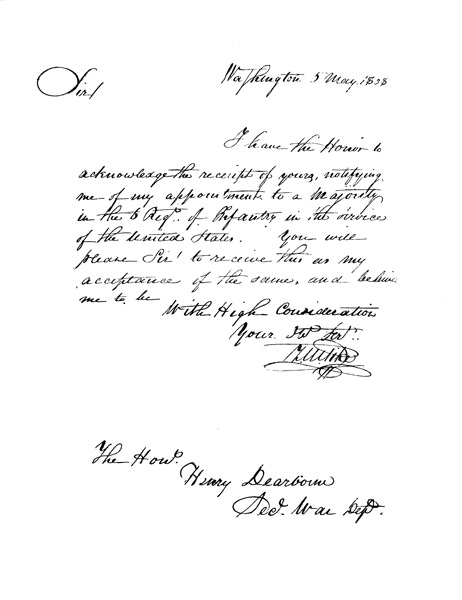 Washington 5 May, 1808
Sir/
I have the Honor to
acknowledge the receipt of yours, notifying
me of my appointment to a Majority
in the 6 Regt. of Infantry in the service
of the United States. You will
please Sir! to receive this as my
acceptance of the same, and believe
me to be
With High Consideration
Your Obt. Sert.
Z.M. Pike
The Honl.
Henry Dearborn
Sec. War Dept.